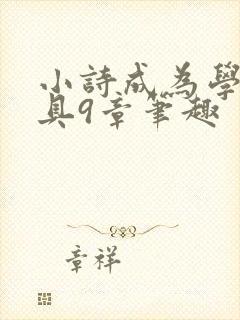 小詩成為學
具9章筆趣
章祥